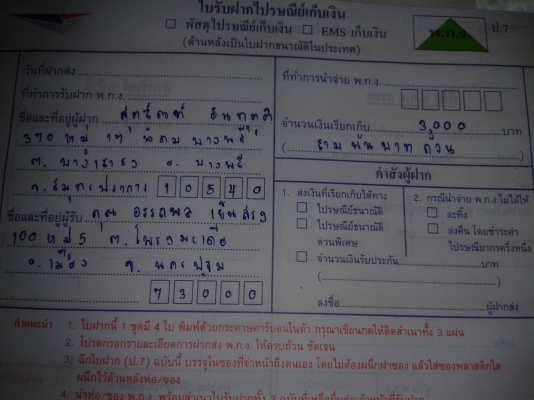 ใบรับฝากไปรษณีย์เก็บเงิน
พัสดุไปรษณีย์เก็บเงิน EMS เก็บเงิน
(ด้านหลังเป็นใบฝากธนาณัติในประเทศ)
พ.ก.ง.
ป.7
วันที่ฝากส่ง
ที่ทำการรับฝาก พ.ก.ง.
ชื่อและที่อยู่ผู้ฝาก
370 หมู่ 17 นิคม บางพลี
ต. บางเสาธง อ. บางพลี
จ. สมุทรปราการ 10540
ชื่อและที่อยู่ผู้รับ คุณ อรรถพล
100 หมู่ 5 ต. โพรงมะเดื่อ
อ. เมือง จ. นครปฐม
73000
ที่ทำการนำจ่าย พ.ก.ง.
จำนวนเงินเรียกเก็บ 3,000 บาท
( สามพันบาทถ้วน )
คำสั่งผู้ฝาก
1. ส่งเงินที่เรียกเก็บได้ทาง
ไปรษณีย์ธนาณัติ
ไปรษณีย์ธนาณัติ
ด่วนพิเศษ
2. กรณีนำจ่าย พ.ก.ง.ไม่ได้ให้
ละทิ้ง
ส่งคืน โดยชำระค่า
ไปรษณียากรครึ่งหนึ่ง
จำนวนเงินรับประกัน บาท
( )
ลงชื่อ ผู้ฝากส่ง
คำแนะนำ 1. ใบฝากนี้ 1 ชุดมี 4 ใบ พิมพ์ด้วยกระดาษคาร์บอนในตัว กรุณาเขียนกดให้ติดสำเนาทั้ง 3 แผ่น
2. โปรดกรอกรายละเอียดการฝากส่ง พ.ก.ง. ให้ครบถ้วน ชัดเจน
3. ฉีกใบฝาก (ป.7) ฉบับนี้ บรรจุในซองที่จ่าหน้าถึงตนเอง โดยไม่ต้องผนึกฝาซอง แล้วใส่ซองพลาสติกใส
ผนึกไว้ด้านหลังห่อ/ซอง
4. นำห่อ/ซอง พ.ก.ง. พร้อมสำเนาใบรับฝากทั้ง 3 ฉบับที่เหลือยื่นต่อเจ้าหน้าที่รับฝาก